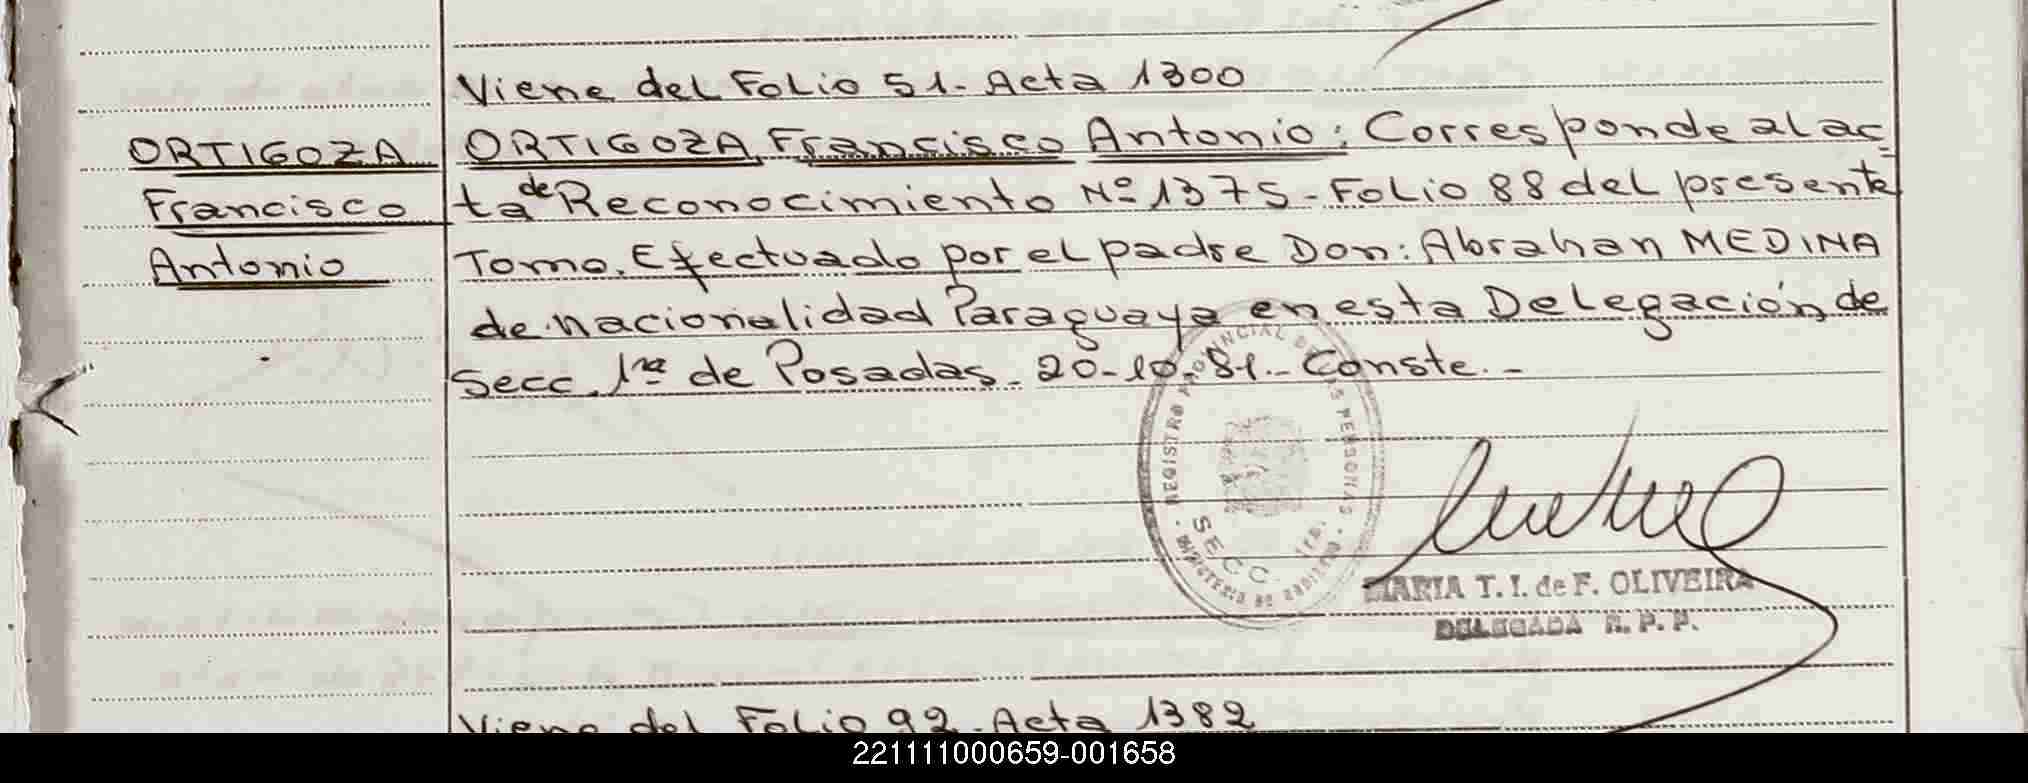 Viene del Folio 51. Acta 1300
ORTIGOZA
Francisco
Antonio
ORTIGOZA, Francisco Antonio: Corresponde al ac-
ta de Reconocimiento Nº 1375 - Folio 88 del presente
Tomo. Efectuado por el padre Don: Abrahan MEDINA
de nacionalidad Paraguaya en esta Delegación de
Secc. 1ra de Posadas. 20-10-81.- Conste.-
REGISTRO PROVINCIAL DE LAS PERSONAS
MINISTERIO DE GOBIERNO
SECC. 1ra.
MARIA T. I. de F. OLIVEIRA
DELEGADA R. P. P.
Viene del Folio 92. Acta 1382
221111000659-001658